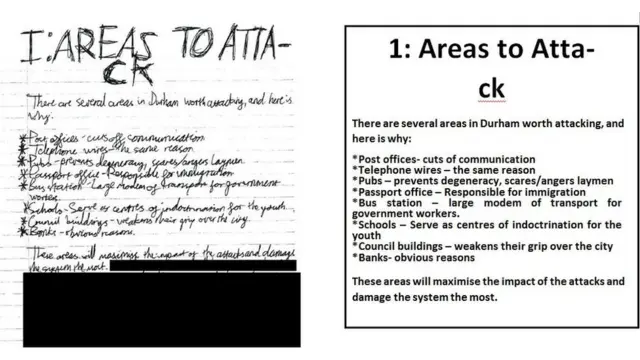 I: AREAS TO ATTA-
CK
There are several areas in Durham worth attacking, and here is
why:
* Post offices - cuts off communication
* Telephone wires - the same reason
* Pubs - prevents degeneracy, scares/angers laymen
* Passport office - Responsible for immigration
* Bus station - Large modem of transport for government
workers.
* Schools - Serve as centres of indoctrination for the youth
* Council buildings - weakens their grip over the city
* Banks - obvious reasons.
These areas will maximise the impact of the attacks and damage
the system the most.
1: Areas to Atta-
ck
There are several areas in Durham worth attacking, and
here is why:
*Post offices- cuts of communication
*Telephone wires – the same reason
*Pubs – prevents degeneracy, scares/angers laymen
*Passport office – Responsible for immigration
*Bus station – large modem of transport for
government workers.
*Schools – Serve as centres of indoctrination for the
youth
*Council buildings – weakens their grip over the city
*Banks- obvious reasons
These areas will maximise the impact of the attacks and
damage the system the most.